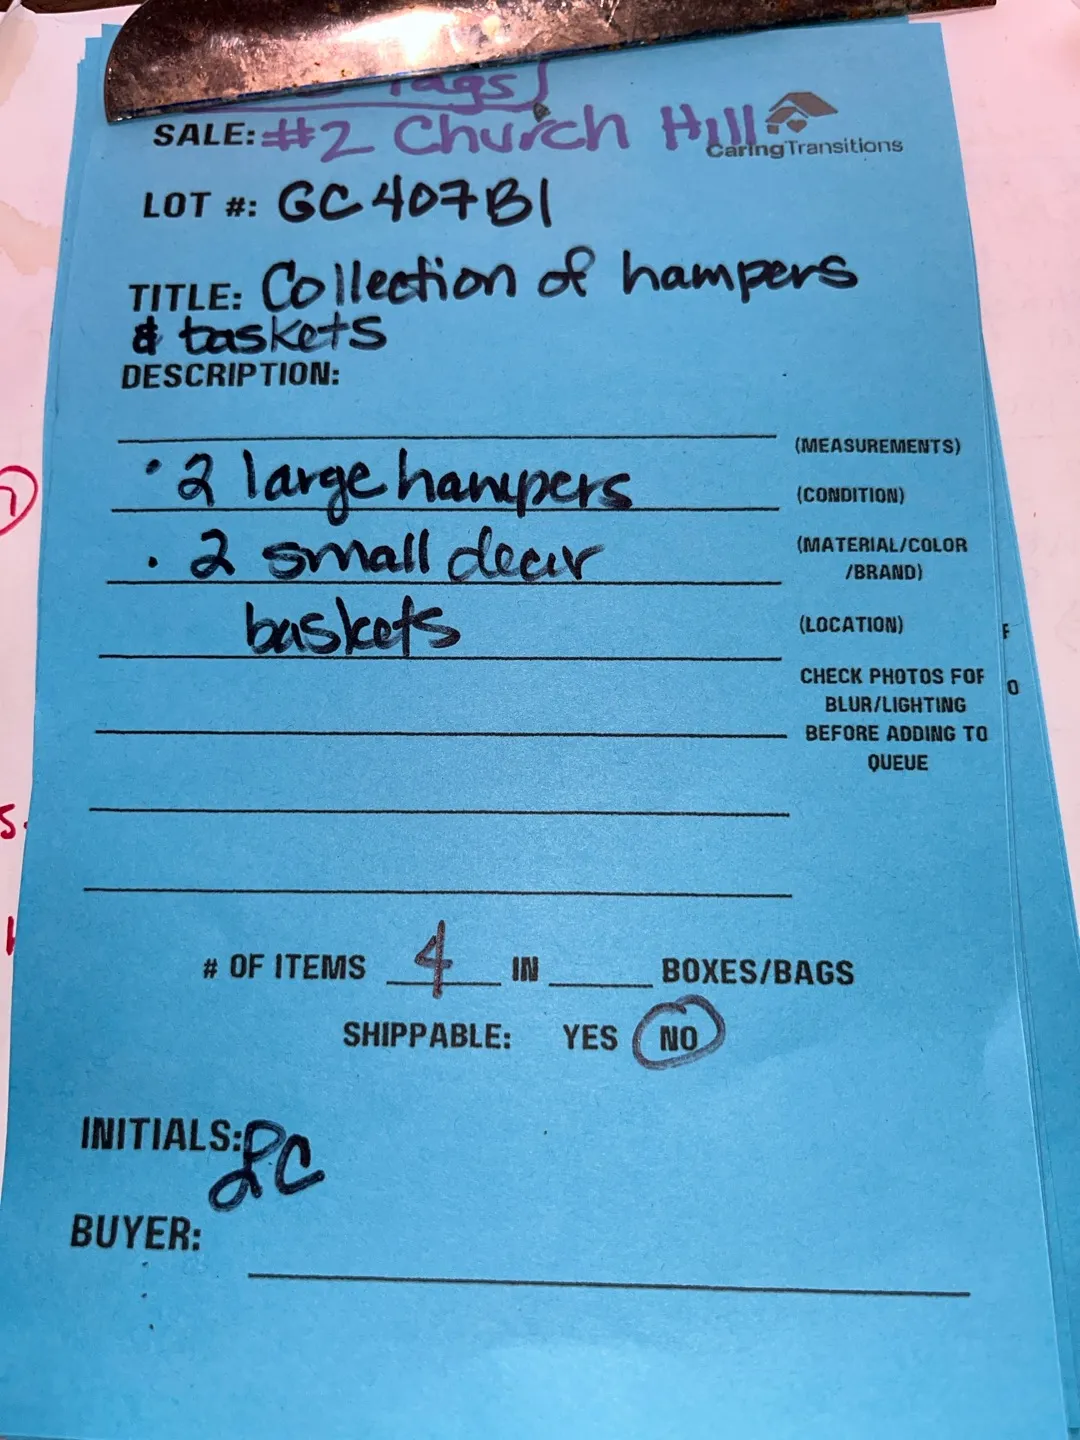 Tags
SALE: #2 Church Hill
CaringTransitions
LOT #: GC407B1
TITLE: Collection of hampers
& baskets
DESCRIPTION:
(MEASUREMENTS)
• 2 large hampers
(CONDITION)
• 2 small decor
(MATERIAL/COLOR
/BRAND)
baskets
(LOCATION)
CHECK PHOTOS FOR
BLUR/LIGHTING
BEFORE ADDING TO
QUEUE
# OF ITEMS 4 IN ____ BOXES/BAGS
SHIPPABLE: YES NO
INITIALS: LC
BUYER: